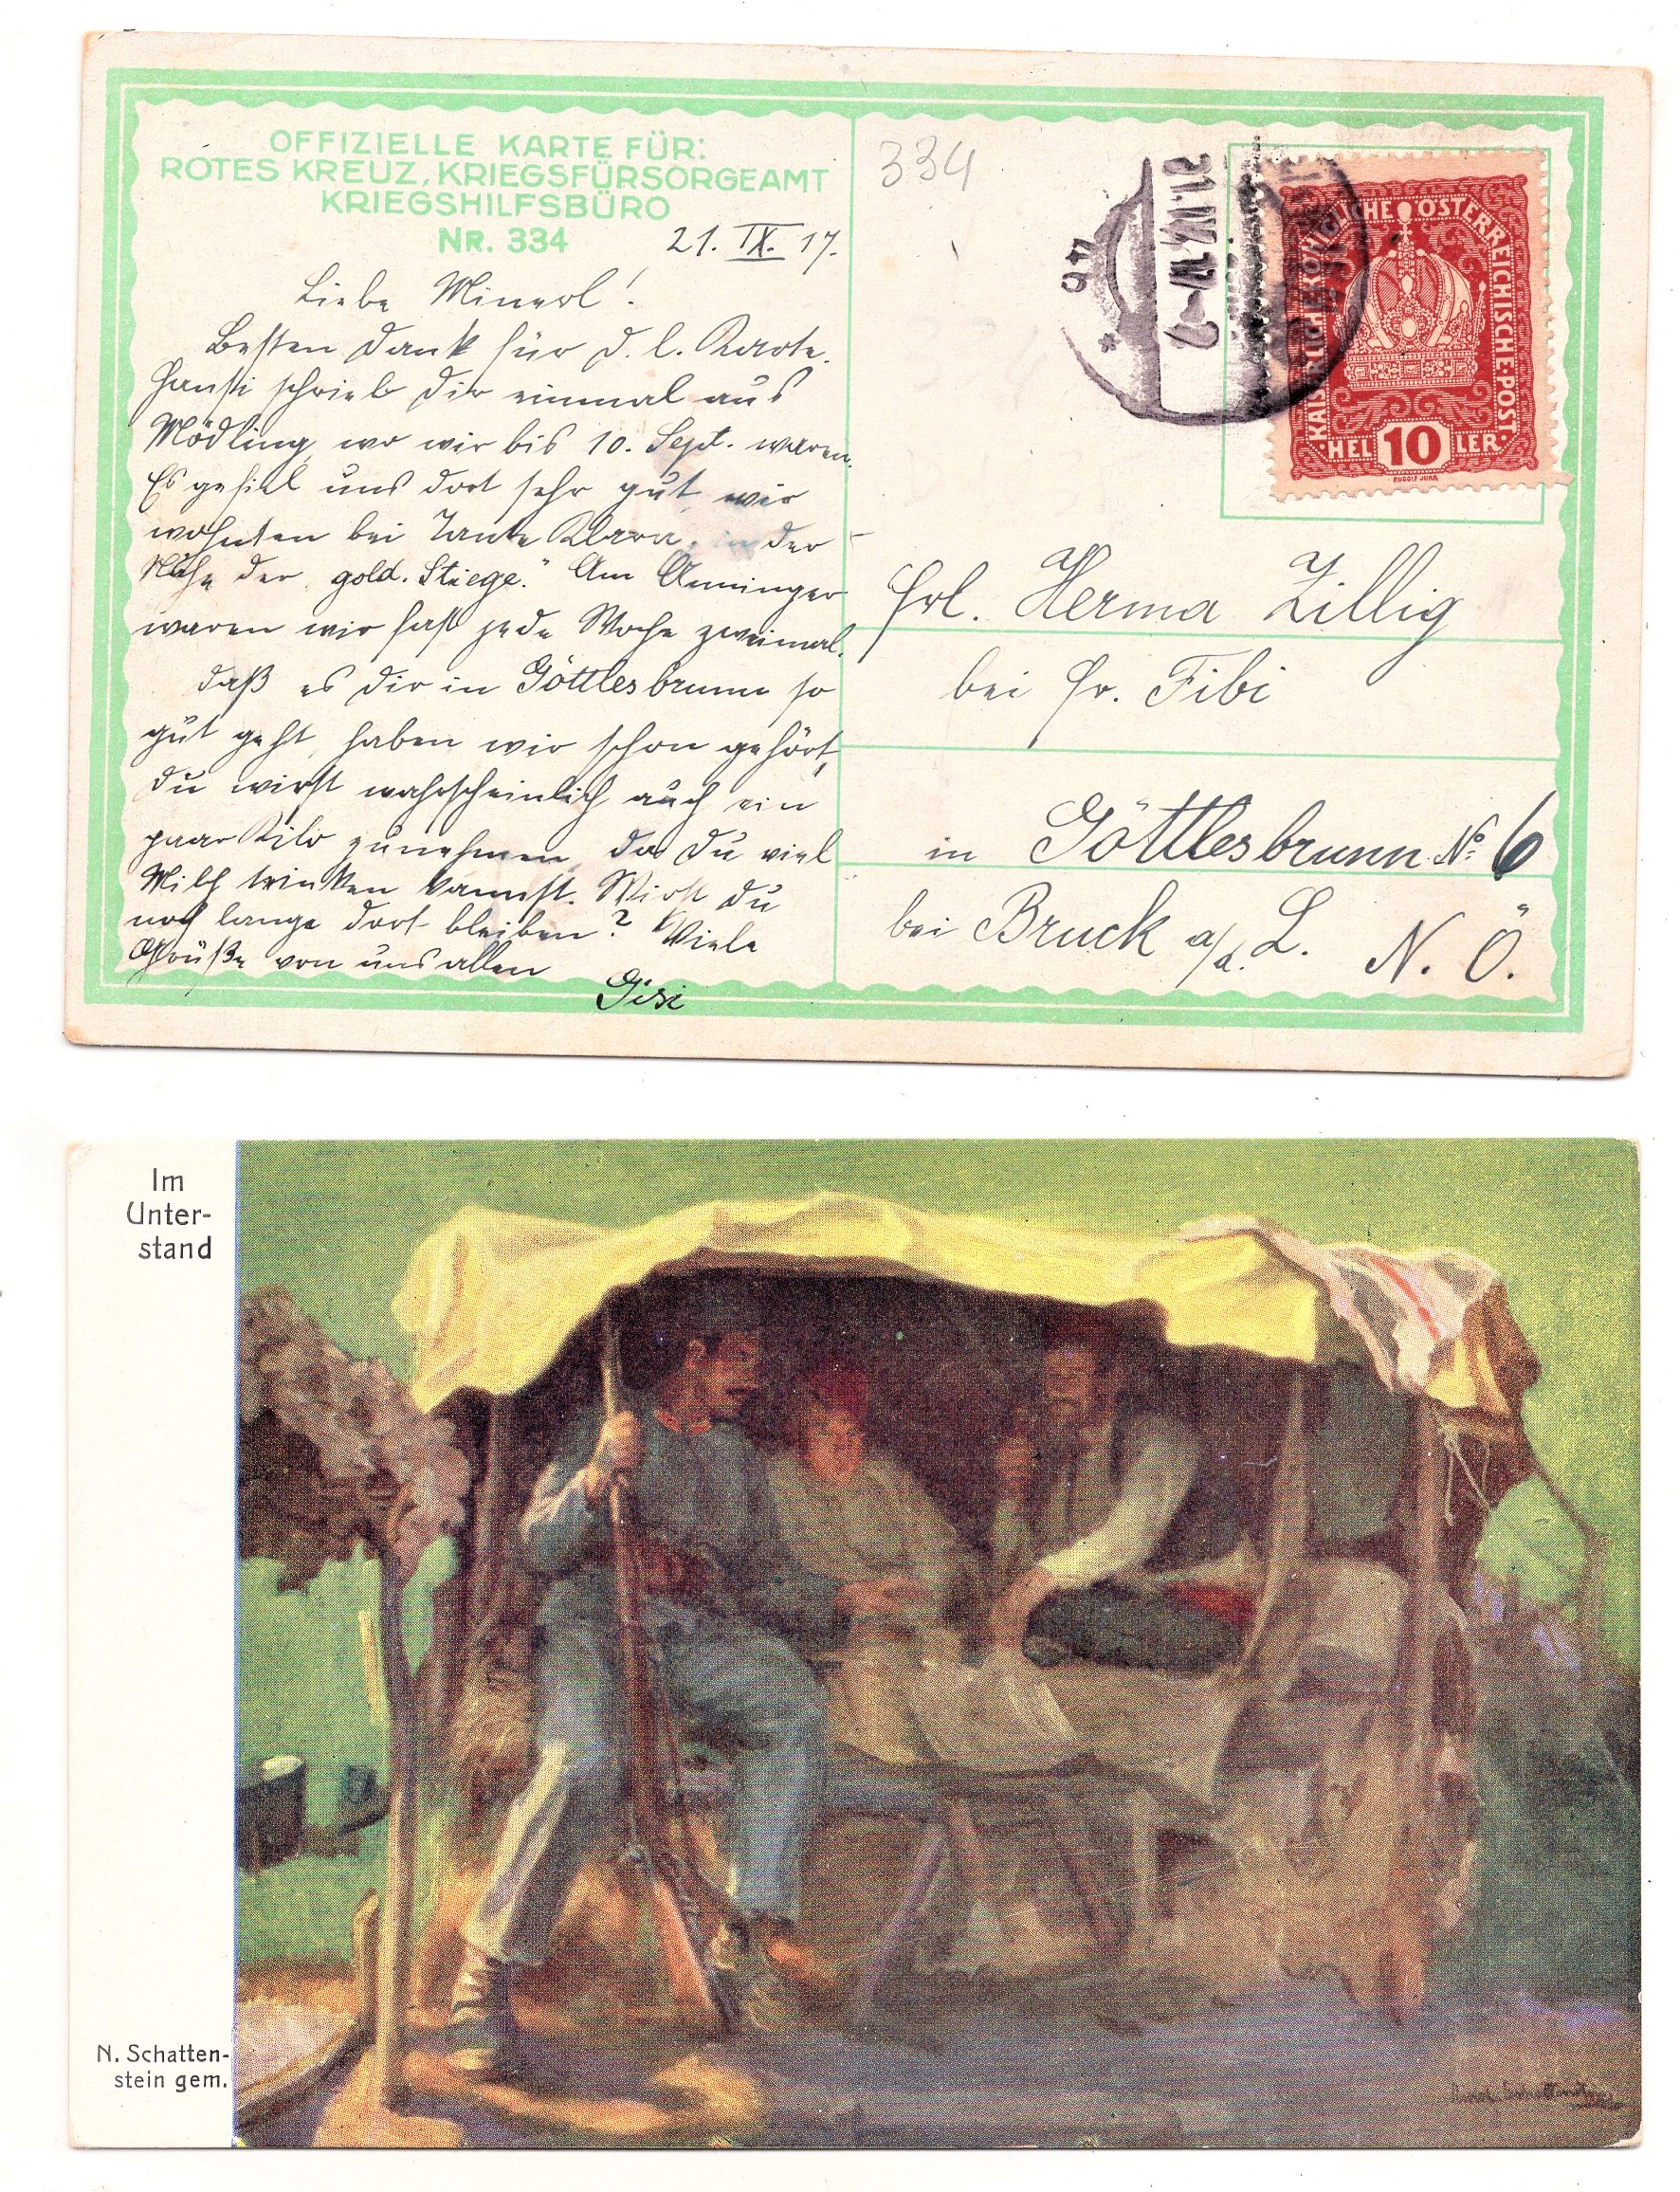 OFFIZIELLE KARTE FÜR:
ROTES KREUZ, KRIEGSFÜRSORGEAMT
KRIEGSHILFSBÜRO
NR. 334
21. IX. 17.
Liebe Minerl!
Besten Dank für d. l. Karte.
Hansi schrieb dir einmal aus
Mödling, wo wir bis 10. Sept. waren.
Es gefiel uns dort sehr gut, wir
wohnten bei Tante Klara, in der
Nähe der "gold. Stiege." Am Anninger
waren wir fast jede Woche zweimal.
Daß es dir in Göttlesbrunn so
gut geht, haben wir schon gehört,
du wirst wahrscheinlich auch ein
paar Kilo zunehmen, da du viel
Milch trinken kannst. Wirst du
noch lange dort bleiben? Viele
Grüße von uns allen
Gisi
334
KAISERLICH KÖNIGLICHE ÖSTERREICHISCHE POST
HEL 10 LER
RUDOLF JUNK
21.IX.17
Frl. Herma Zillig
bei Fr. Fibi
in Göttlesbrunn No 6
bei Bruck a/d. L. N. Ö.
Im
Unter-
stand
N. Schatten-
stein gem.